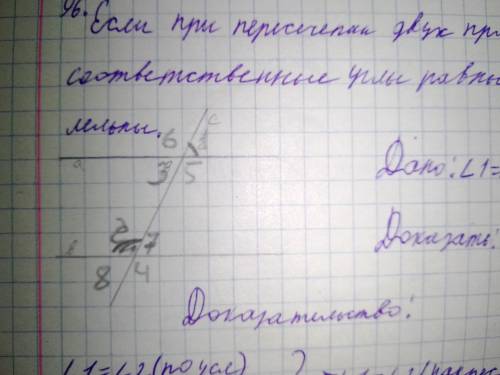 96. Если при пересечении двух пр
соответственные углы равны
лельны.
c
6
a
3 5
Дано: ∠1=
b
7
Доказать:
8 4
Доказательство:
∠1=∠2 (по усл)